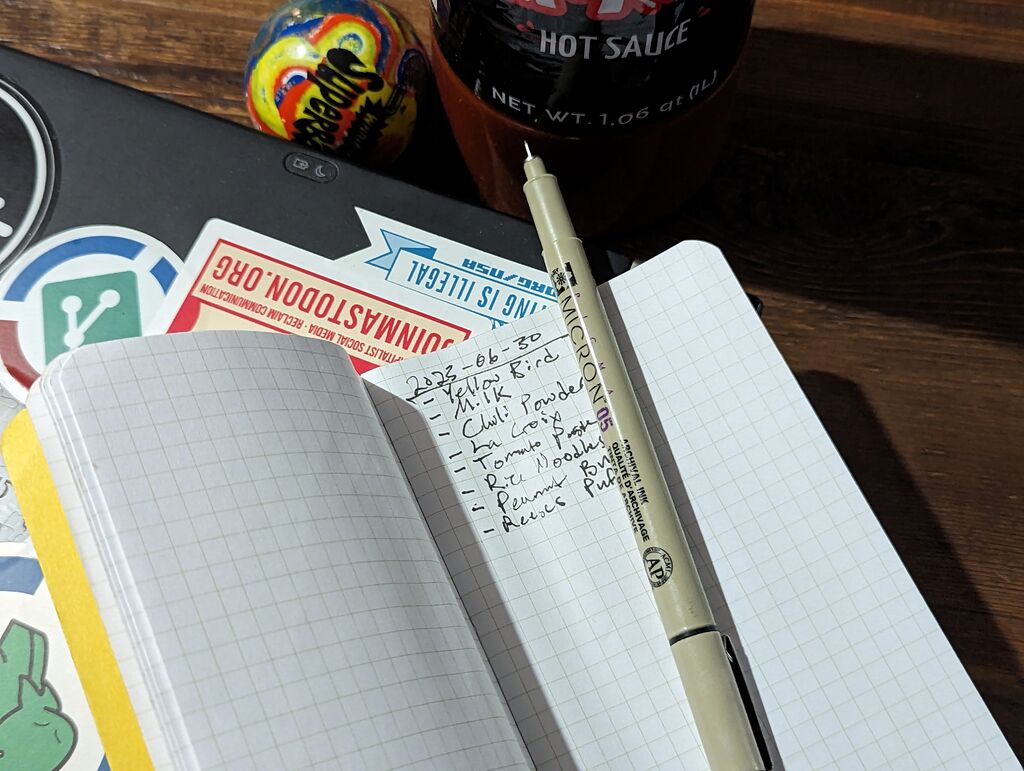 HOT SAUCE
NET WT. 1.06 qt (1L)
JOINMASTODON.ORG
SOCIAL MEDIA · RECLAIM COMMUNICATION
ORG/NSA
IS ILLEGAL
2023-06-30
- Yellow Bird
- Milk
- Chili Powder
- La Croix
- Tomato
- Rice Noodles
- Peanut
- Reeses Puff
MICRON 05
ARCHIVAL INK
QUALITÉ D'ARCHIVAGE
TINTA DE ARCHIVE
AP